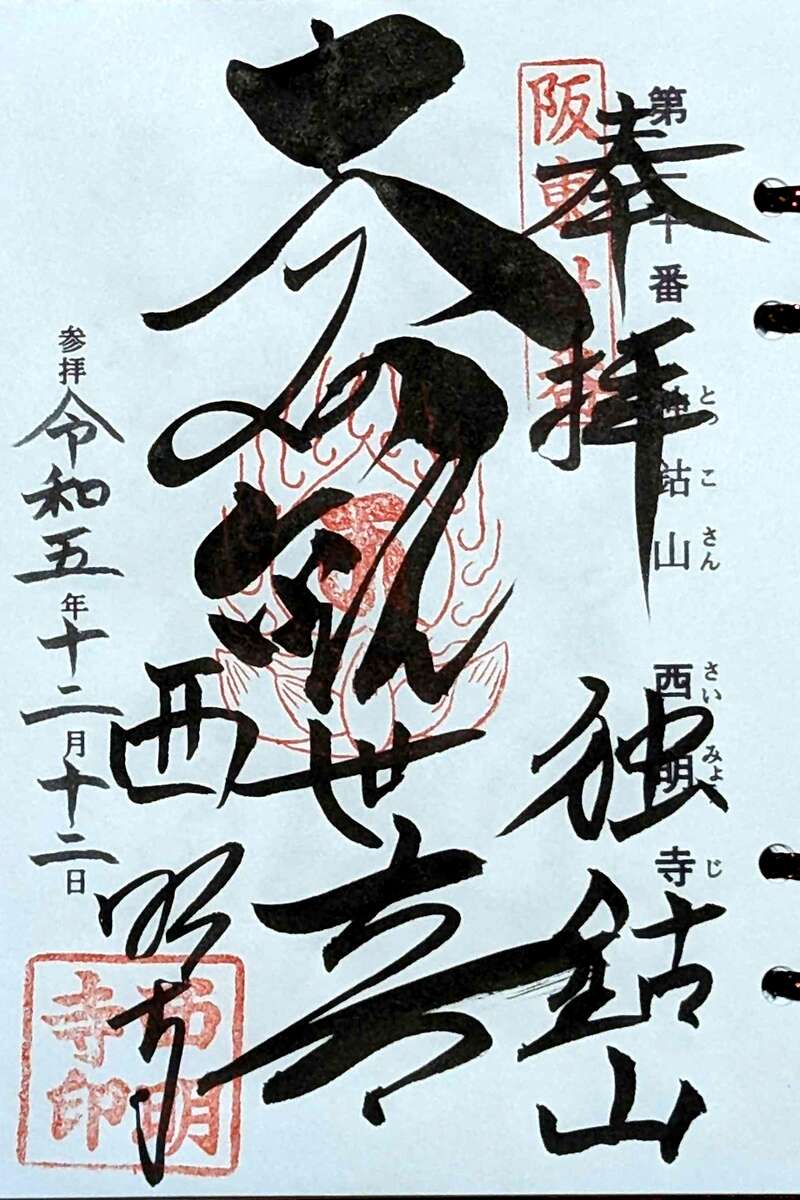 第二十番 独鈷山 西明寺
とっこさん さいみょうじ
奉拝 独鈷山
阪東廿番
観世音
西明寺
参拝 令和五年十二月十二日
西明寺印